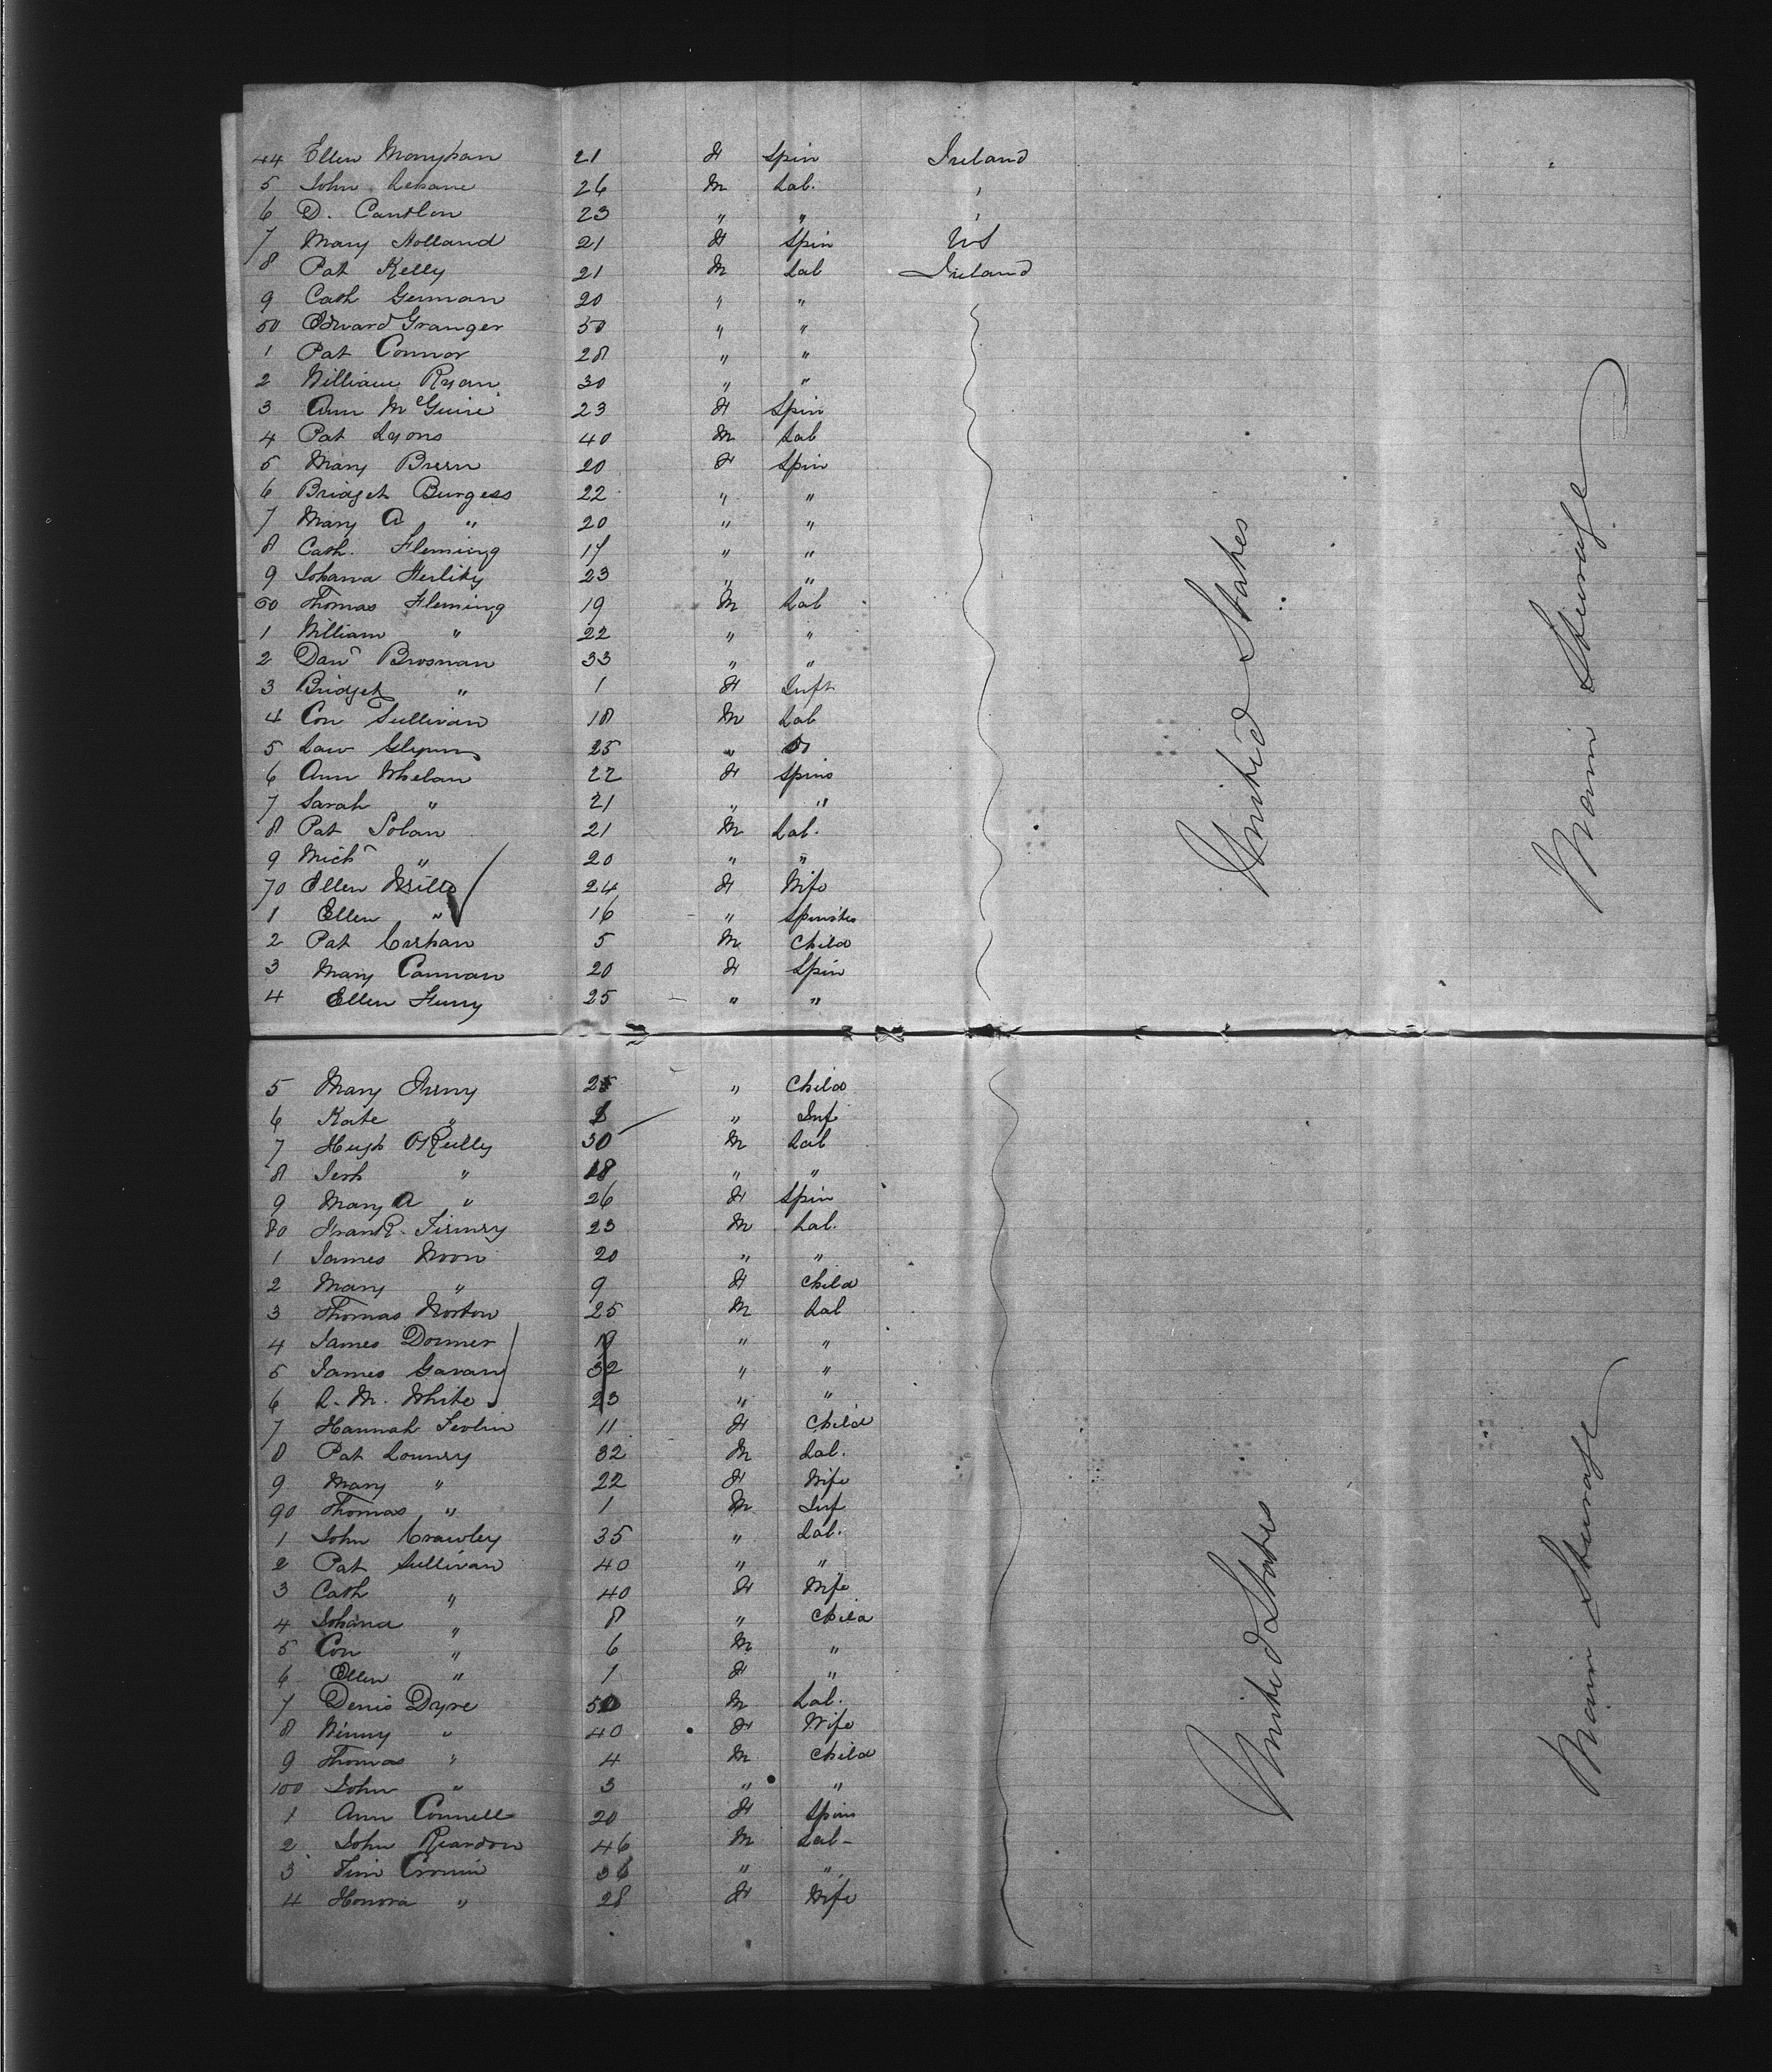 44 Ellen Monyhan 21 F Spin Ireland
5 John Lehane 26 M Lab. "
6 D. Cantlon 23 " " "
7 Mary Holland 21 F Spin US
8 Pat Kelly 21 M Lab Ireland
9 Cath German 20 " "
50 Edward Granger 50 " "
1 Pat Connor 28 " "
2 William Ryan 30 " "
3 Ann McGuire 23 F Spin
4 Pat Lyons 40 M Lab
5 Mary Breen 20 F Spin
6 Bridget Burgess 22 " "
7 Mary A " 20 " "
8 Cath. Fleming 17 " "
9 Johana Herlihy 23 " "
60 Thomas Fleming 19 M Lab
1 William " 22 " "
2 Danl Brosnan 33 " "
3 Bridget " 1 F Inft
4 Con Sullivan 18 M Lab
5 Law Glynn 25 " Do
6 Ann Whelan 22 F Spins
7 Sarah " 21 " "
8 Pat Solan 21 M Lab.
9 Michl " 20 " "
70 Ellen 24 F Wife
1 Ellen " 16 " Spinster
2 Pat 5 M Child
3 Mary Cannan 20 F Spin
4 Ellen 25 " "
United States
Main Steerage
5 Mary " Child
6 Kate " " Inf
7 Hugh OReilly 30 M Lab
8 Jerh " 18 " "
9 Mary A " 26 F Spin
80 Frank Tierney 23 M Lab.
1 James Noon 20 " "
2 Mary " 9 F Child
3 Thomas Norton 25 M Lab
4 James Dormer " "
5 James Gavan 32 " "
6 L. M. White 23 " "
7 Hannah 11 F Child
8 Pat Lowney 32 M Lab.
9 Mary " 22 F Wife
90 Thomas " 1 M Inf
1 John Crawley 35 " Lab.
2 Pat Sullivan 40 " "
3 Cath " 40 F Wife
4 Johana " 8 " Child
5 Con " 6 M "
6 Ellen " 1 F "
7 Denis Dyne 50 M Lab.
8 Winny " 40 F Wife
9 Thomas " 4 M Child
100 John " 3 " "
1 Ann Connell 20 F Spins
2 John Reardon 46 M Lab-
3 Tim Cronin 36 " "
4 Honora " 28 F Wife
United States
Main Steerage